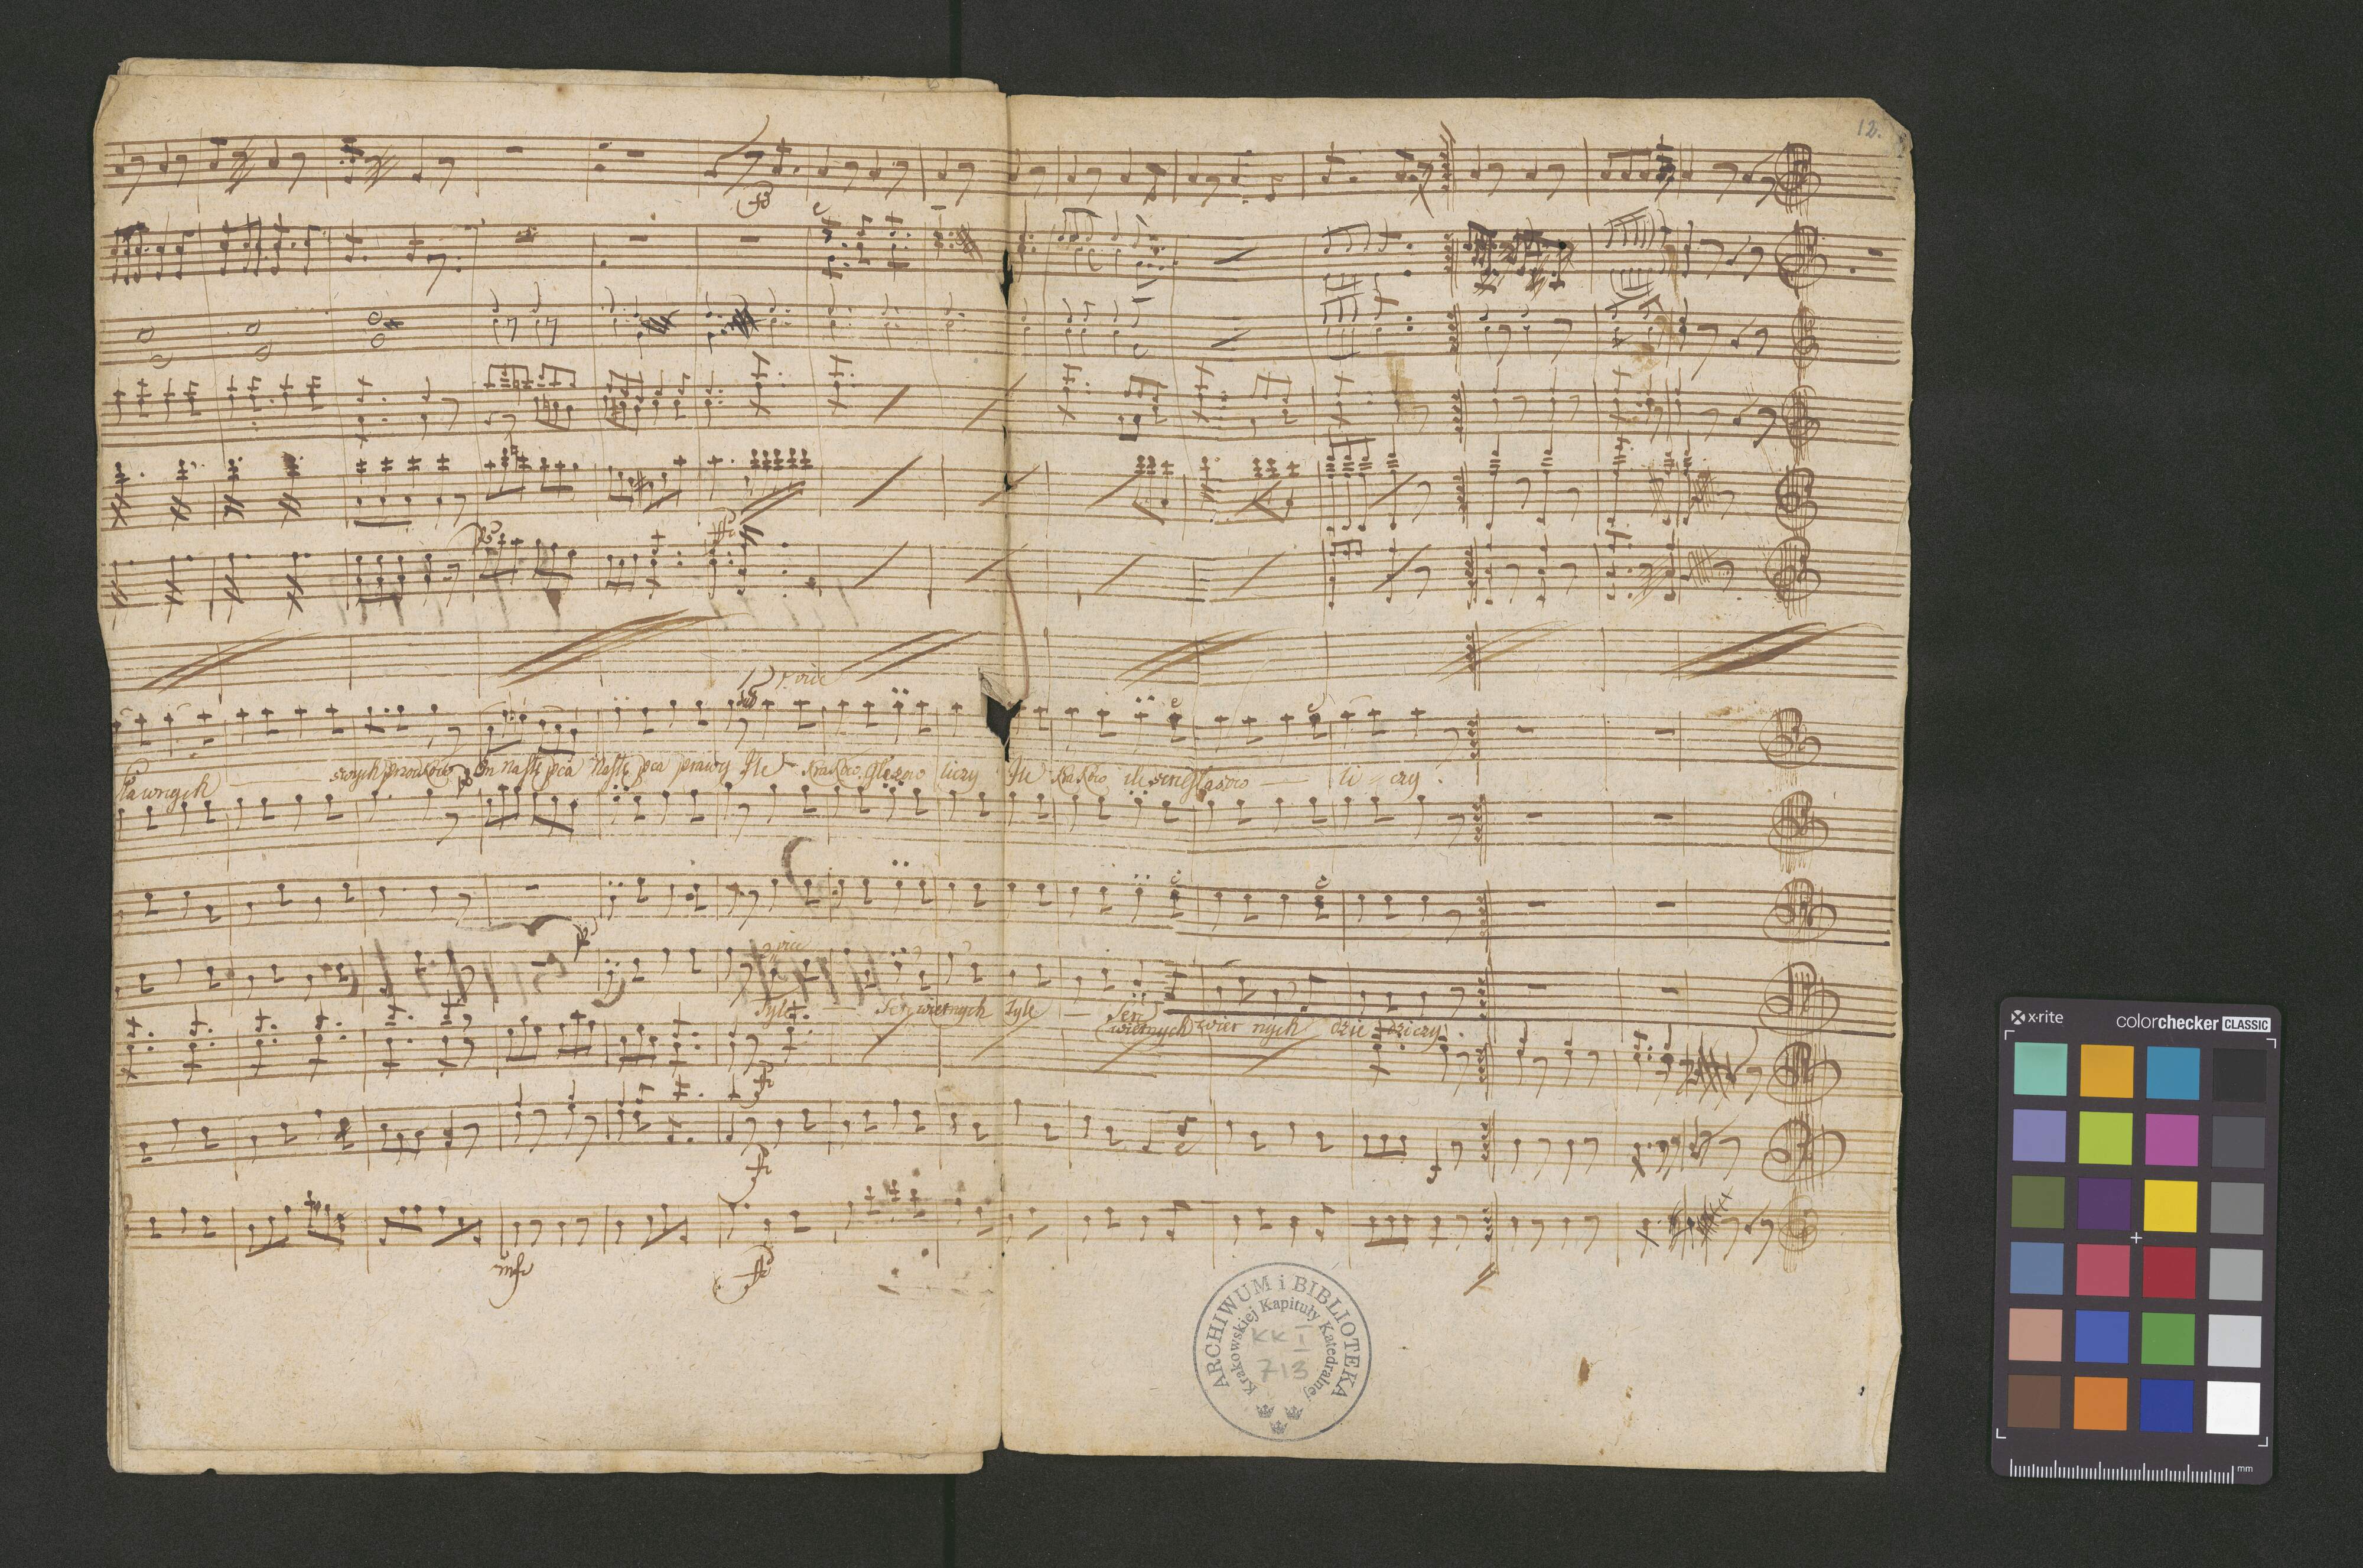 12.
fo
1 vice
sławnych — swych przodków On nastę pca nastę pca prawy Ile Krakow Głazow liczy Ile Krakow ile
li - czy.
2 vice
Tyle — Serc wiernych Tyle — Serc
wiernych wier nych dzie dziczy.
mfo
ARCHIWUM i BIBLIOTEKA
Krakowskiej Kapituły Katedralnej
KK I
713
x-rite
colorchecker CLASSIC
mm